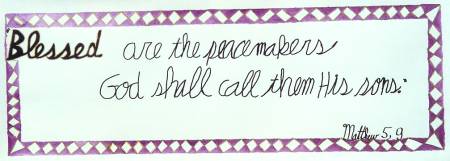 Blessed are the peacemakers
God shall call them His sons."
Matthew 5, 9